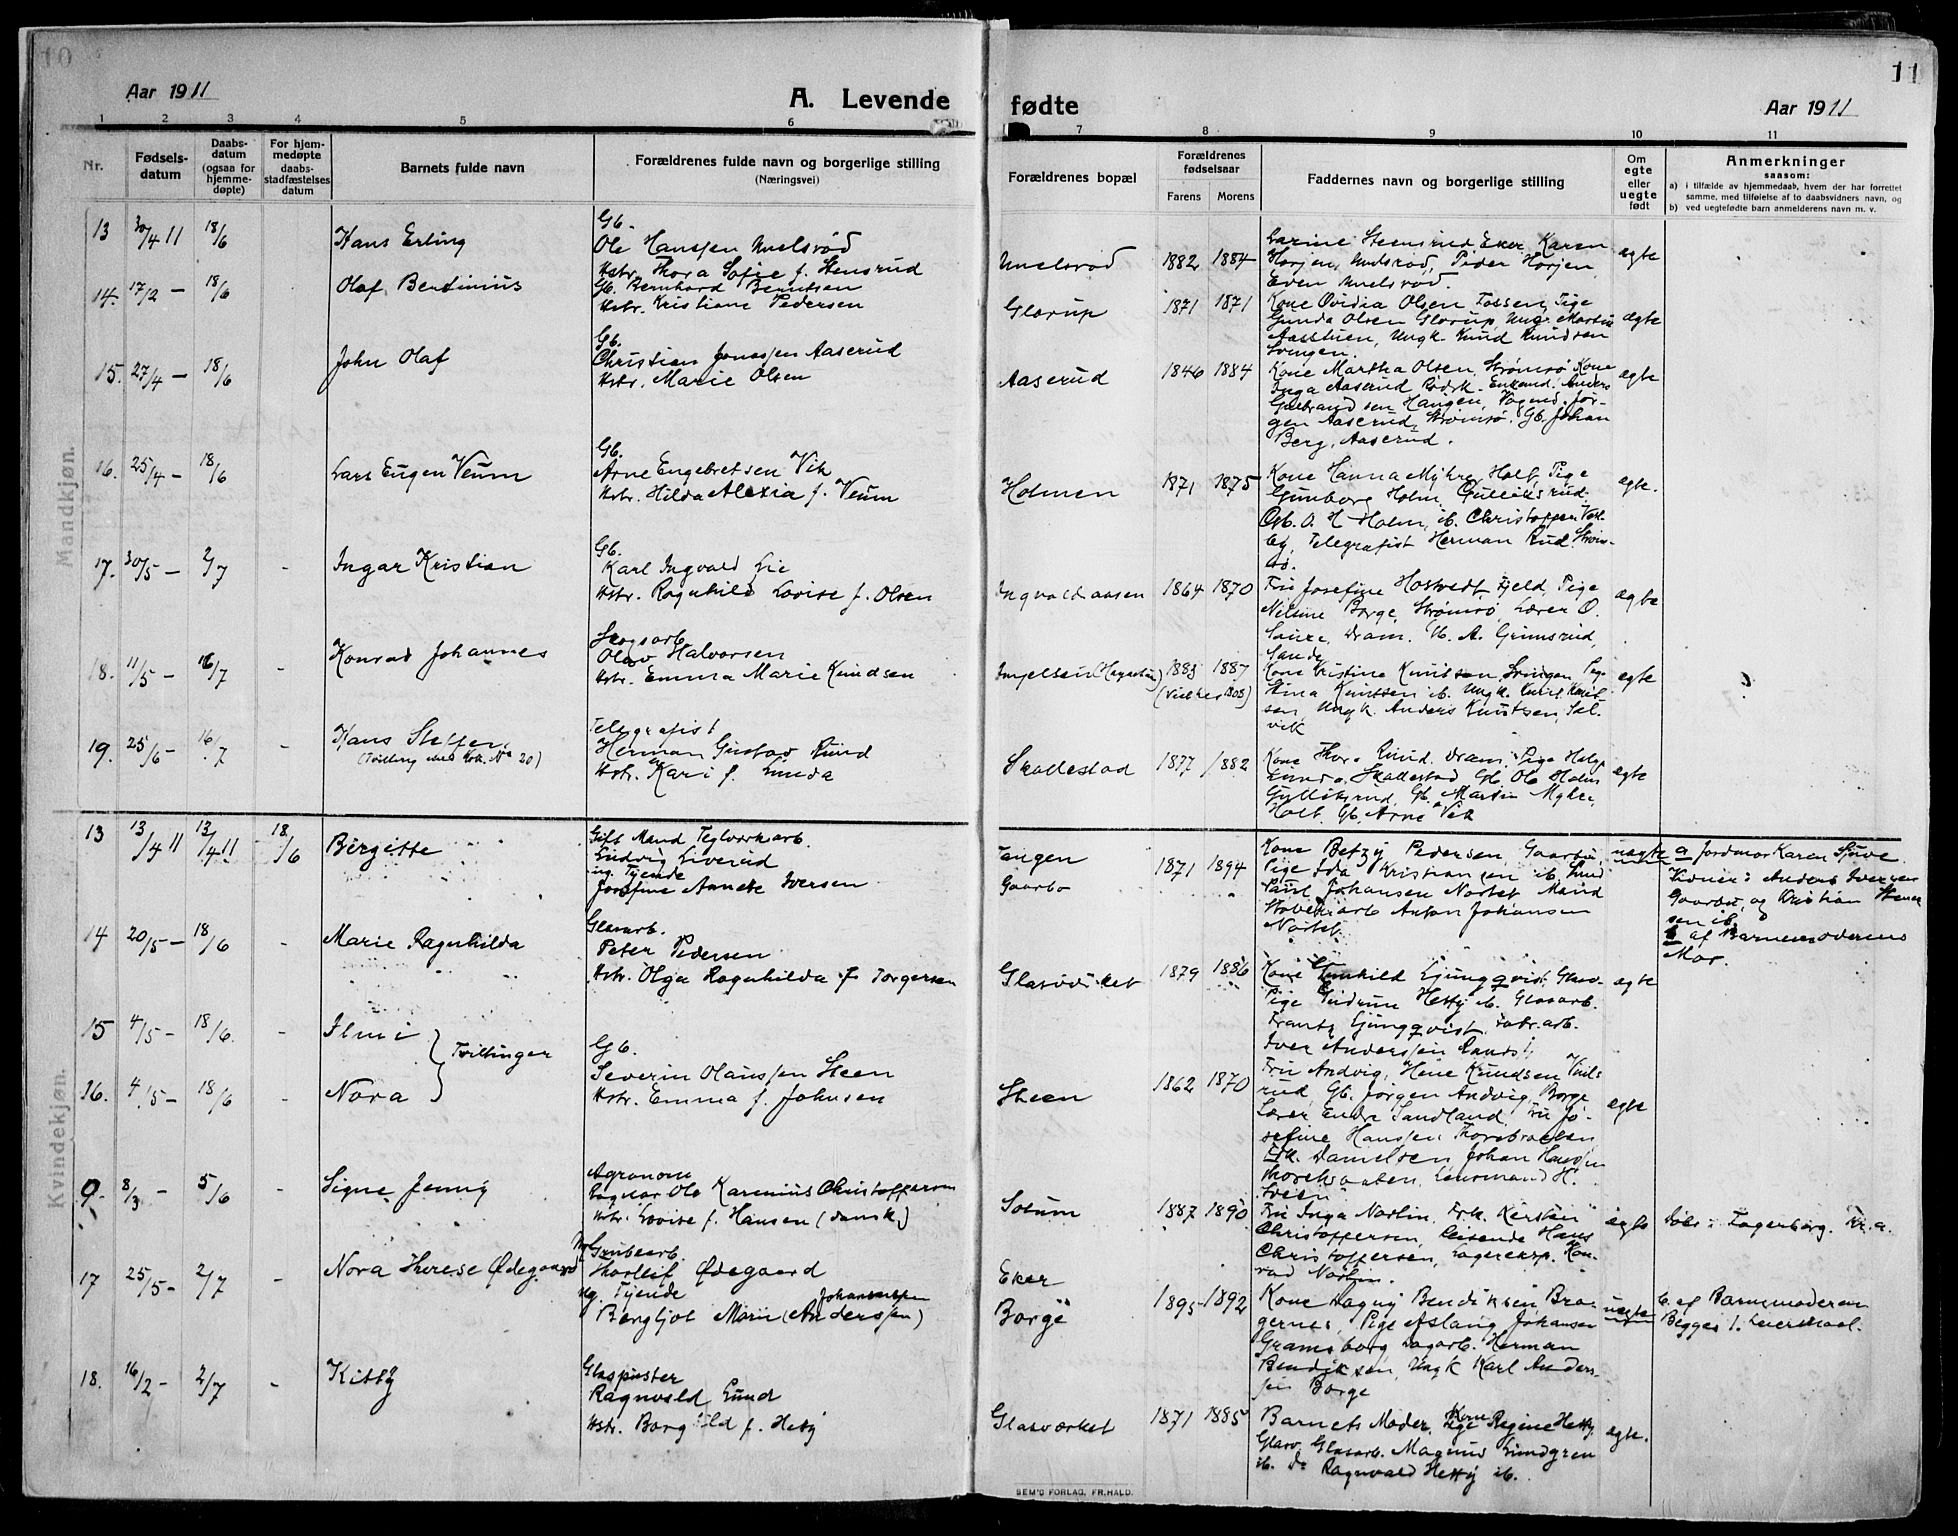 10
11
Aar 1911
A. Levende fødte
Aar 1911
1 2 3 4 5 6 7 8 9 10 11
Nr.
Fødsels-
datum
Daabs-
datum
(ogsaa for
hjemme-
døpte)
For hjem-
medøpte
daabs-
stadfæstelses
datum
Barnets fulde navn
Forældrenes fulde navn og borgerlige stilling
(Næringsvei)
Forældrenes bopæl
Forældrenes
fødselsaar
Farens Morens
Faddernes navn og borgerlige stilling
Om
egte
eller
uegte
født
Anmerkninger
saasom:
a) i tilfælde av hjemmedaab, hvem der har forrettet
samme, med tilføielse af to daabsvidners navn, og
b) ved uegtefødte barn anmelderens navn m. v.
Mandkjøn.
13 30/4 11 18/6 Hans Erling
Gb.
Ole Hanssen Unelsrød
Hstr. Thora Sofie f. Stensrud
Unelsrød 1882 1884
Larine Steensrud, Eker, Karen
Horjen, Unelsrød, Peder Horjen,
Even Unelsrød.
egte
14. 17/2 – 18/6 Olaf Bentinius
Gb. Bernhard Berntsen
Hstr. Kristiane Pedersen
Glorup 1871 1871
Kone Ovidia Olsen Fossen, Pige
Gunda Olsen Glorup, Ungk. Martin
Aasstuen, Ungk. Knud Knudsen
Svingen.
egte
15. 27/4 – 18/6 John Olaf
Gb.
Christian Jonassen Aaserud
Hstr. Marie Olsen
Aaserud 1846 1884
Kone Martha Olsen, Strømsø Kone
Inga Aaserud Enkemd. Anders
Gulbrandsen Haugen, Vognmd. Jør-
gen Aaserud, Strømsø. Gb. Johan
Berg, Aaserud.
egte
16. 25/4 – 18/6 Lars Eugen Veum
Gb.
Arne Engebretsen Vik
Hstr. Hilda Alexia f. Veum
Holmen 1871 1875
Kone Hanna Myhre, Holt, Pige
Gunborg Holm Gulliksrud.
Gb. O. H. Holm, ib. Christoffer
Telegrafist Herman Ruud Strøm-
sø.
egte.
17. 30/5 – 2/7 - Ingar Kristian
Gb.
Karl Ingvald Lie
Hstr. Ragnhild Lovise f. Olsen
Ingvaldsaasen 1864 1870
Fru Josefine Hostvedt, Fjeld, Pige
Nilsine Borge, Strømsø Lærer O.
Saure, Dram. Gb. A. Grimsrud,
Sande
egte
18. 11/5 – 16/7 - Konrad Johannes
Skogsarb.
Olav Halvorsen
Hstr. Emma Marie Knudsen
1883 1887
Kone Kristine Knutsen, Svingen Pige
Stina Knutsen ib. Ungk. Knut Knut-
sen, Ungk. Anders Knutsen, Sel-
vik
egte
19. 25/6 – 16/7 - Hans Steffen
(Tvilling med Kvk. No 20)
Telegrafist
Herman Gustav Ruud
Hstr. Kari f. Lunda
Skallestad 1877 1882
Kone Thora Ruud. Dram. Pige Helga
Lunda, Skallestad Gb. Ole Holm
Gulliksrud, Gb. Martin Myhre,
Holt. Gb. Arne Vik
egte
Kvindekjøn.
13 13/4 11 13/4 11 18/6 Birgitte
Gift Mand Teglverksarb.
Ludvig Liverud
ug. Tjende
Josefine Annette Iversen
Tangen
Gaarbo
1871 1894
Kone Betzy Pedersen, Gaarbo,
Pige Ida Kristiansen ib.
Paul Johansen Nørtet
Anton Johansen
Nørtet
uegte
a Jordmor Karen Sjøve
Vidner: Anders Iversen
Gaarbo, og Kristian
sen ib.
b af Barnemoderens
Mor.
14 20/5 – 18/6 - Marie Ragnhilda
Glasarb.
Peter Pedersen
Hstr. Olga Ragnhilda f Torgersen
Glasværket 1879 1886
Kone Gunhild Ljungqvist, Glasv.
Pige Gudrun Hetty ib. Glasarb.
Frantz Ljungqvist, Fabr.arb.
Iver Anderssen
egte
15 4/5 – 18/6. - Ilmi
Tvillinger
16. 4/5 – 18/6 - Nora
Gb.
Severin Olaussen Steen
Hstr. Emma f. Johnsen
Steen 1862 1870
Fru Andvig, Hene Knudsen
rud, Gb. Jørgen Andvig, Borge
Lærer Endre Sandland, Fru Jo-
sefine Hanssen Thorsbraaten
Danielsen, Johan Hanssen
Thorsbraaten, Lensmand H.
Sveen
egte
9. 8/3 – 5/6 - Signe Jenny
Agronom
Ragnar Ole Karenius Christoffersen
Hstr. Lovise f. Hansen (dansk)
Solum 1887 1890
Fru Inga Norlin, Frk. Kersten
Christoffersen, Reisende Hans
Christoffersen, Lagereksp. Kon-
rad Norlin.
egte
Døbt i Fagerborg. Kr.a.
17 25/5 – 2/7 - Nora Therese Ødegaard
Grubearb.
Thorleif Ødegaard
ug. Tjende
Johannessen
Bergljot Marie (Anderssen)
Eker
Borge
1895 1892
Kone Dagny Bendiksen, Bra-
gernes, Pige Aslaug Johansen
Gramsborg Dagarb. Herman
Bendiksen, Ungk Karl Anders-
sen Borge
uegte
b. af Barnemoderen
Begges 1. Leiermaal.
18. 16/2 – 2/7 - Kitty
Glaspuster
Ragnvald Lund
Hstr. Borghild f. Hetty
Glasværket 1871 1885
Barnets Moder, Kone Regine Hetty
Glasv. Glasarb. Magnus Lundgren
ib. Do Ragnvald Hetty ib.
egte.
SEM'S FORLAG, FR.HALD.